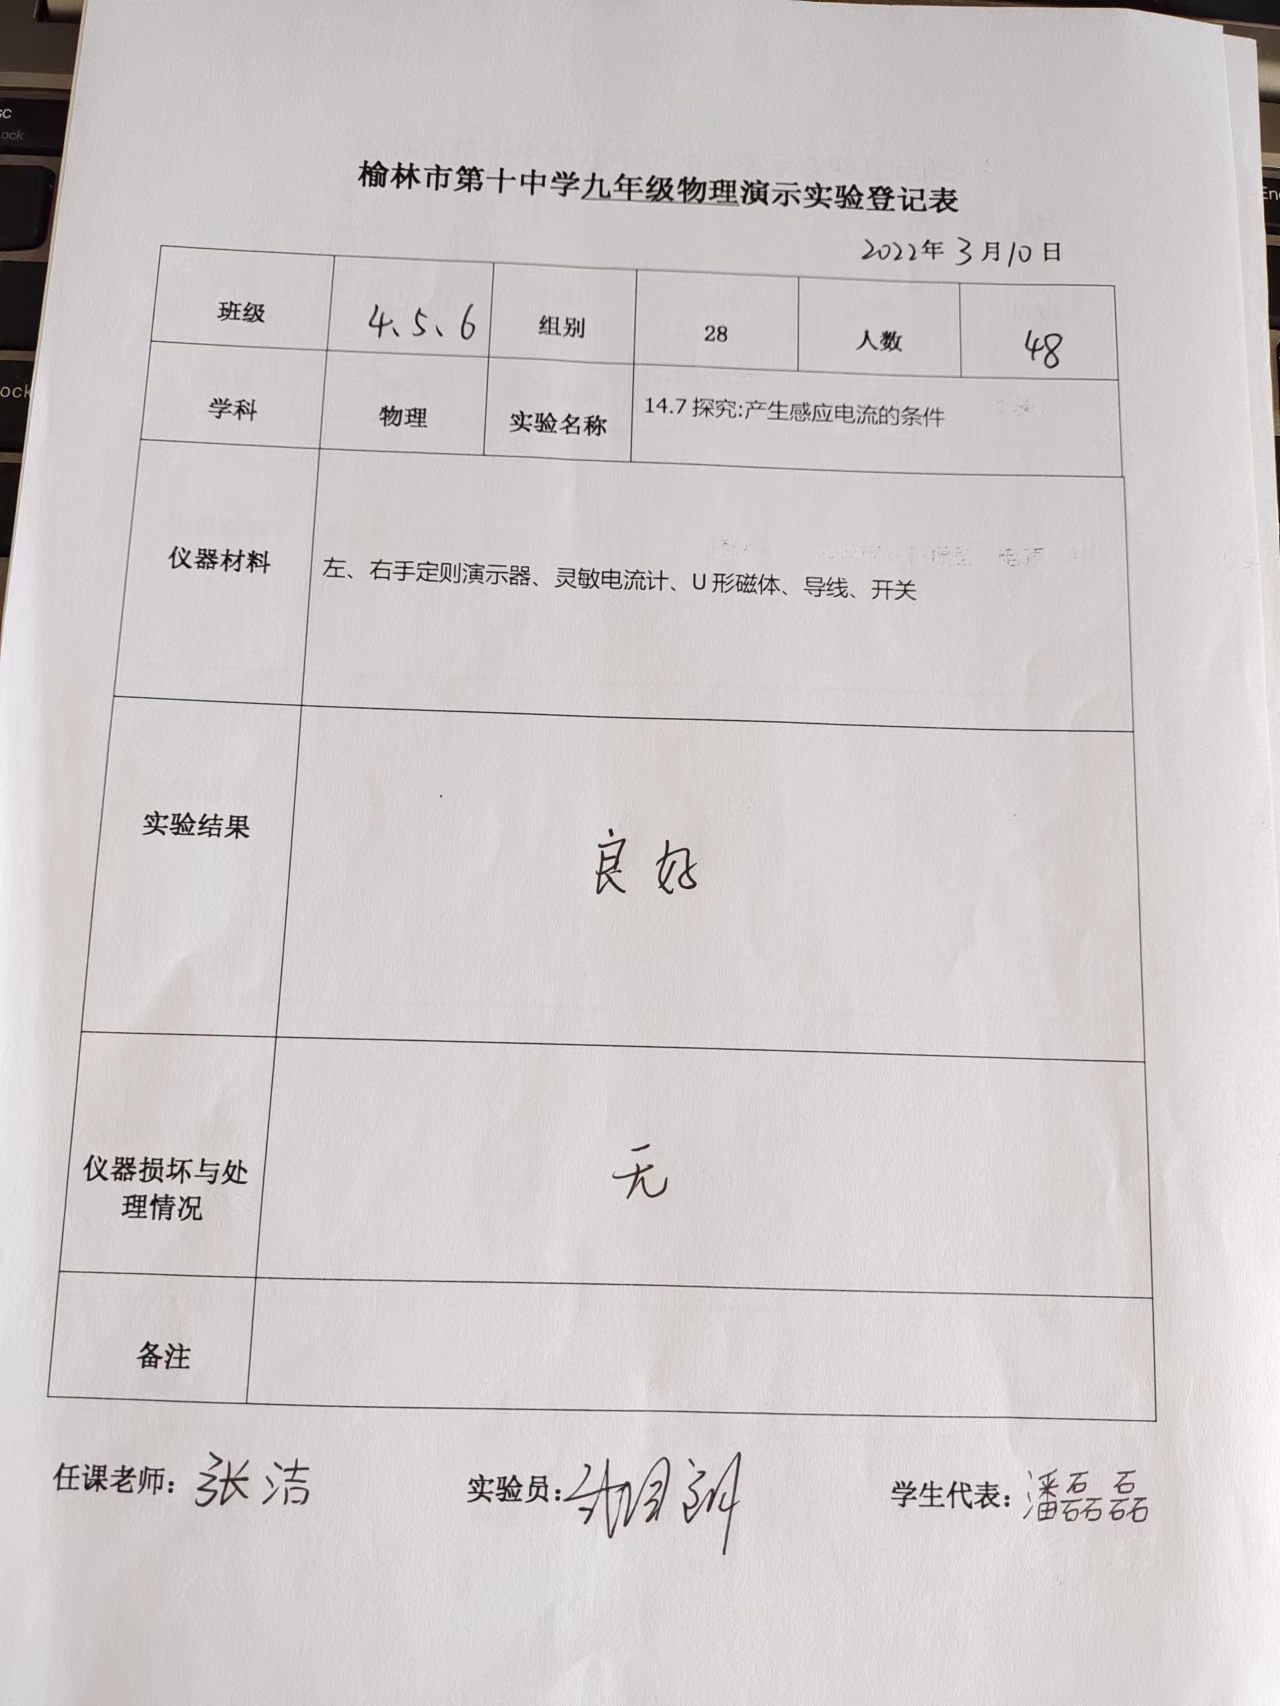 榆林市第十中学九年级物理演示实验登记表
2022年3月10日
班级 4、5、6 组别 28 人数 48
学科 物理 实验名称 14.7 探究:产生感应电流的条件
仪器材料 左、右手定则演示器、灵敏电流计、U 形磁体、导线、开关
实验结果 良好
仪器损坏与处
理情况 无
备注
任课老师: 张洁 实验员: 学生代表: 潘磊磊